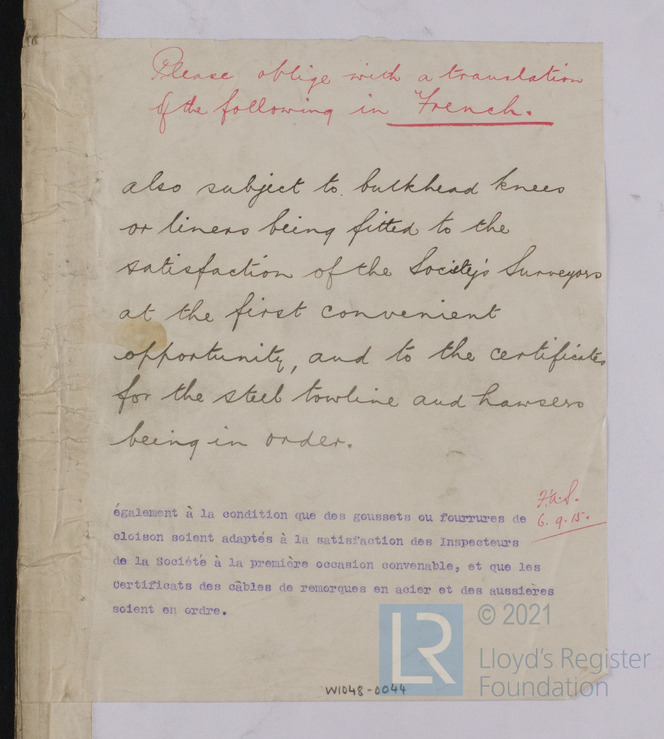 Please oblige with a translation
of the following in French.
also subject to bulkhead knees
or liners being fitted to the
satisfaction of the Society's Surveyors
at the first convenient
opportunity, and to the certificates
for the steel towline and hawsers
being in order.
également à la condition que des goussets ou fourrures de
cloison soient adaptés à la satisfaction des Inspecteurs
de la Société à la première occasion convenable, et que les
certificats des câbles de remorques en acier et des aussières
soient en ordre.
6.9.15.
© 2021
LR
Lloyd's Register
Foundation
W1048-0044